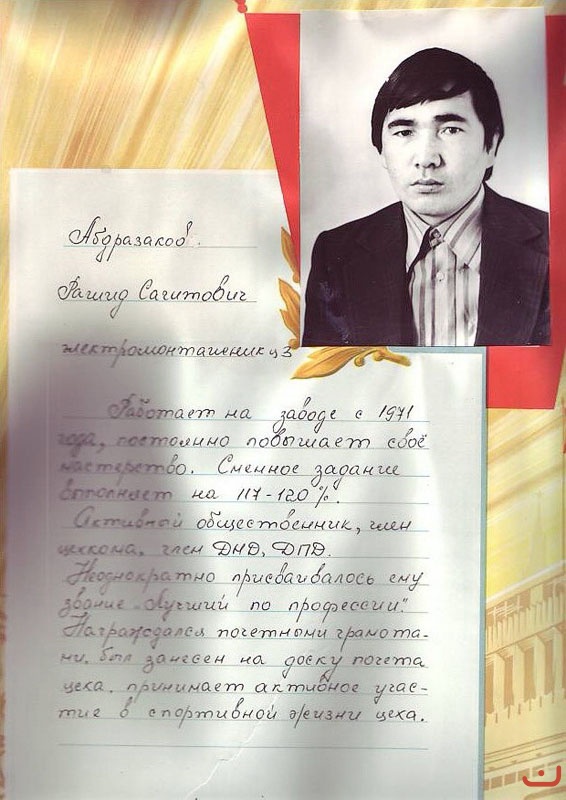 Абдразаков.
Рашид Сагитович
электромонтажник ц3
Работает на заводе с 1971
года, постоянно повышает своё
мастерство. Сменное задание
выполняет на 117-120%.
Активный общественник, член
цехкома, член ДНД, ДПД.
Неоднократно присваивалось ему
звание „Лучший по профессии".
Награждался почетными грамота-
ми. был занесен на доску почета
цеха. принимает активное учас-
тие в спортивной жизни цеха.